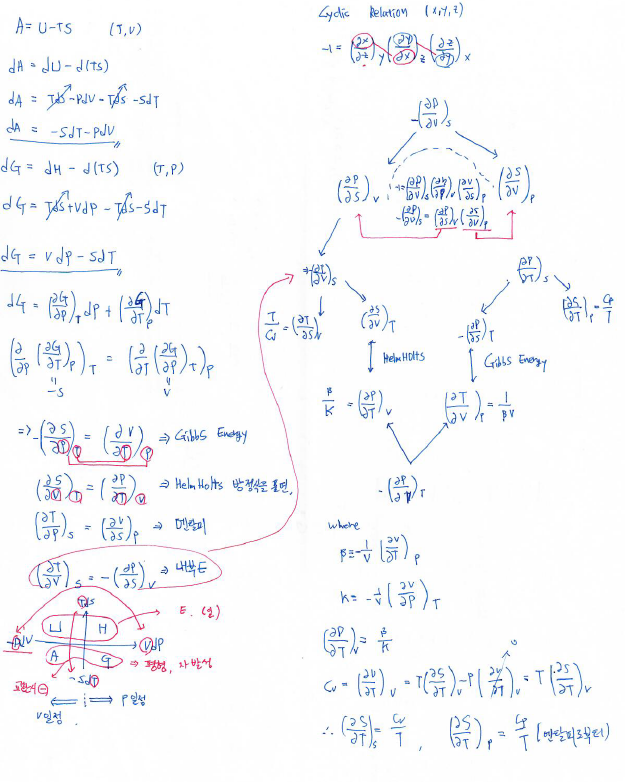 A = U-TS (T,V)
dA = dU - d(TS)
dA = TdS - PdV - TdS - SdT
dA = -SdT - PdV
dG = dH - d(TS) (T,P)
dG = TdS + VdP - TdS - SdT
dG = VdP - SdT
dG = (∂G/∂P)_T dP + (∂G/∂T)_P dT
(∂/∂P (∂G/∂T)_P)_T = (∂/∂T (∂G/∂P)_T)_P
= -S = V
=> -(∂S/∂P)_T = (∂V/∂T)_P => Gibbs Energy
(∂S/∂V)_T = (∂P/∂T)_V => HelmHolts 방정식을 풀면,
(∂T/∂P)_S = (∂V/∂S)_P => 엔탈피
(∂T/∂V)_S = -(∂P/∂S)_V => 내부E
TdS
U H => E. (일)
-PdV VdP
A G => 평형, 자발성
-SdT
V일정 P일정
Cyclic Relation (x,y,z)
-1 = (∂x/∂z)_y (∂y/∂x)_z (∂z/∂y)_x
-(∂P/∂V)_S
(∂P/∂S)_V (∂S/∂V)_P
-(∂P/∂V)_S = (∂P/∂S)_V (∂S/∂V)_P
=> -(∂T/∂V)_S
(∂P/∂T)_S
T/Cv = (∂T/∂S)_V (∂S/∂V)_T
-(∂P/∂S)_T (∂S/∂T)_P = Cp/T
HelmHolts Gibbs Energy
β/K = (∂P/∂T)_V (∂T/∂V)_P = 1/βV
-(∂P/∂V)_T
where
β = -1/V (∂V/∂T)_P
K = -1/V (∂V/∂P)_T
(∂P/∂T)_V = β/K
Cv = (∂U/∂T)_V = T(∂S/∂T)_V - P(∂V/∂T)_V = T(∂S/∂T)_V
∴ (∂S/∂T)_S = Cv/T , (∂S/∂T)_P = Cp/T (엔탈피로부터)